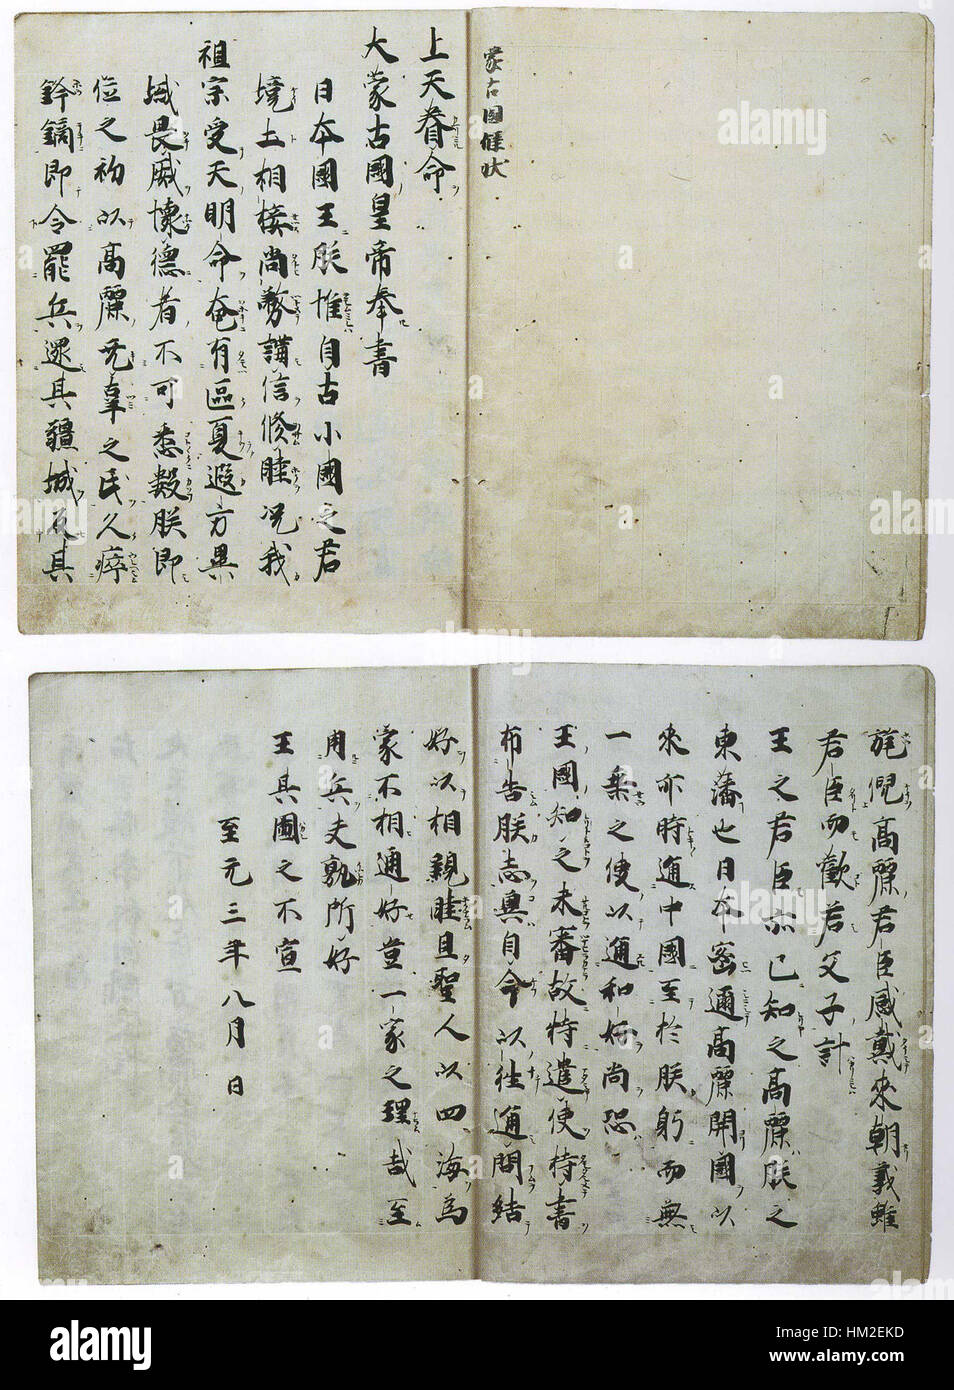 蒙古國牒状
上天眷命
大蒙古國皇帝奉書
日本國王朕惟自古小國之君
境土相接尚務講信修睦况我
祖宗受天明命奄有區夏遐方異
域畏威懷德者不可悉數朕即
位之初以高麗无辜之民久瘁
鋒鏑即令罷兵還其疆域反其
旄倪高麗君臣感戴來朝義雖
君臣而歡若父子計
王之君臣亦已知之高麗朕之
東藩也日本密邇高麗開國以
來亦時通中國至於朕躬而無
一乘之使以通和好尚恐
王國知之未審故特遣使持書
布告朕志冀自今以往通問結
好以相親睦且聖人以四海為
家不相通好豈一家之理哉至
用兵夫孰所好
王其圖之不宣
至元三年八月 日
alamy
alamy
Image ID: HM2EKD
www.alamy.com